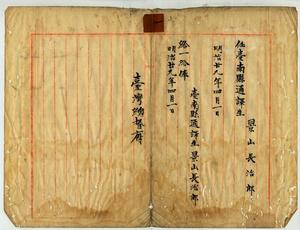 任臺南縣通譯生
景山長治郎
明治廿九年四月一日
臺南縣通譯生景山長治郎
給一級俸
明治廿九年四月一日
臺灣總督府